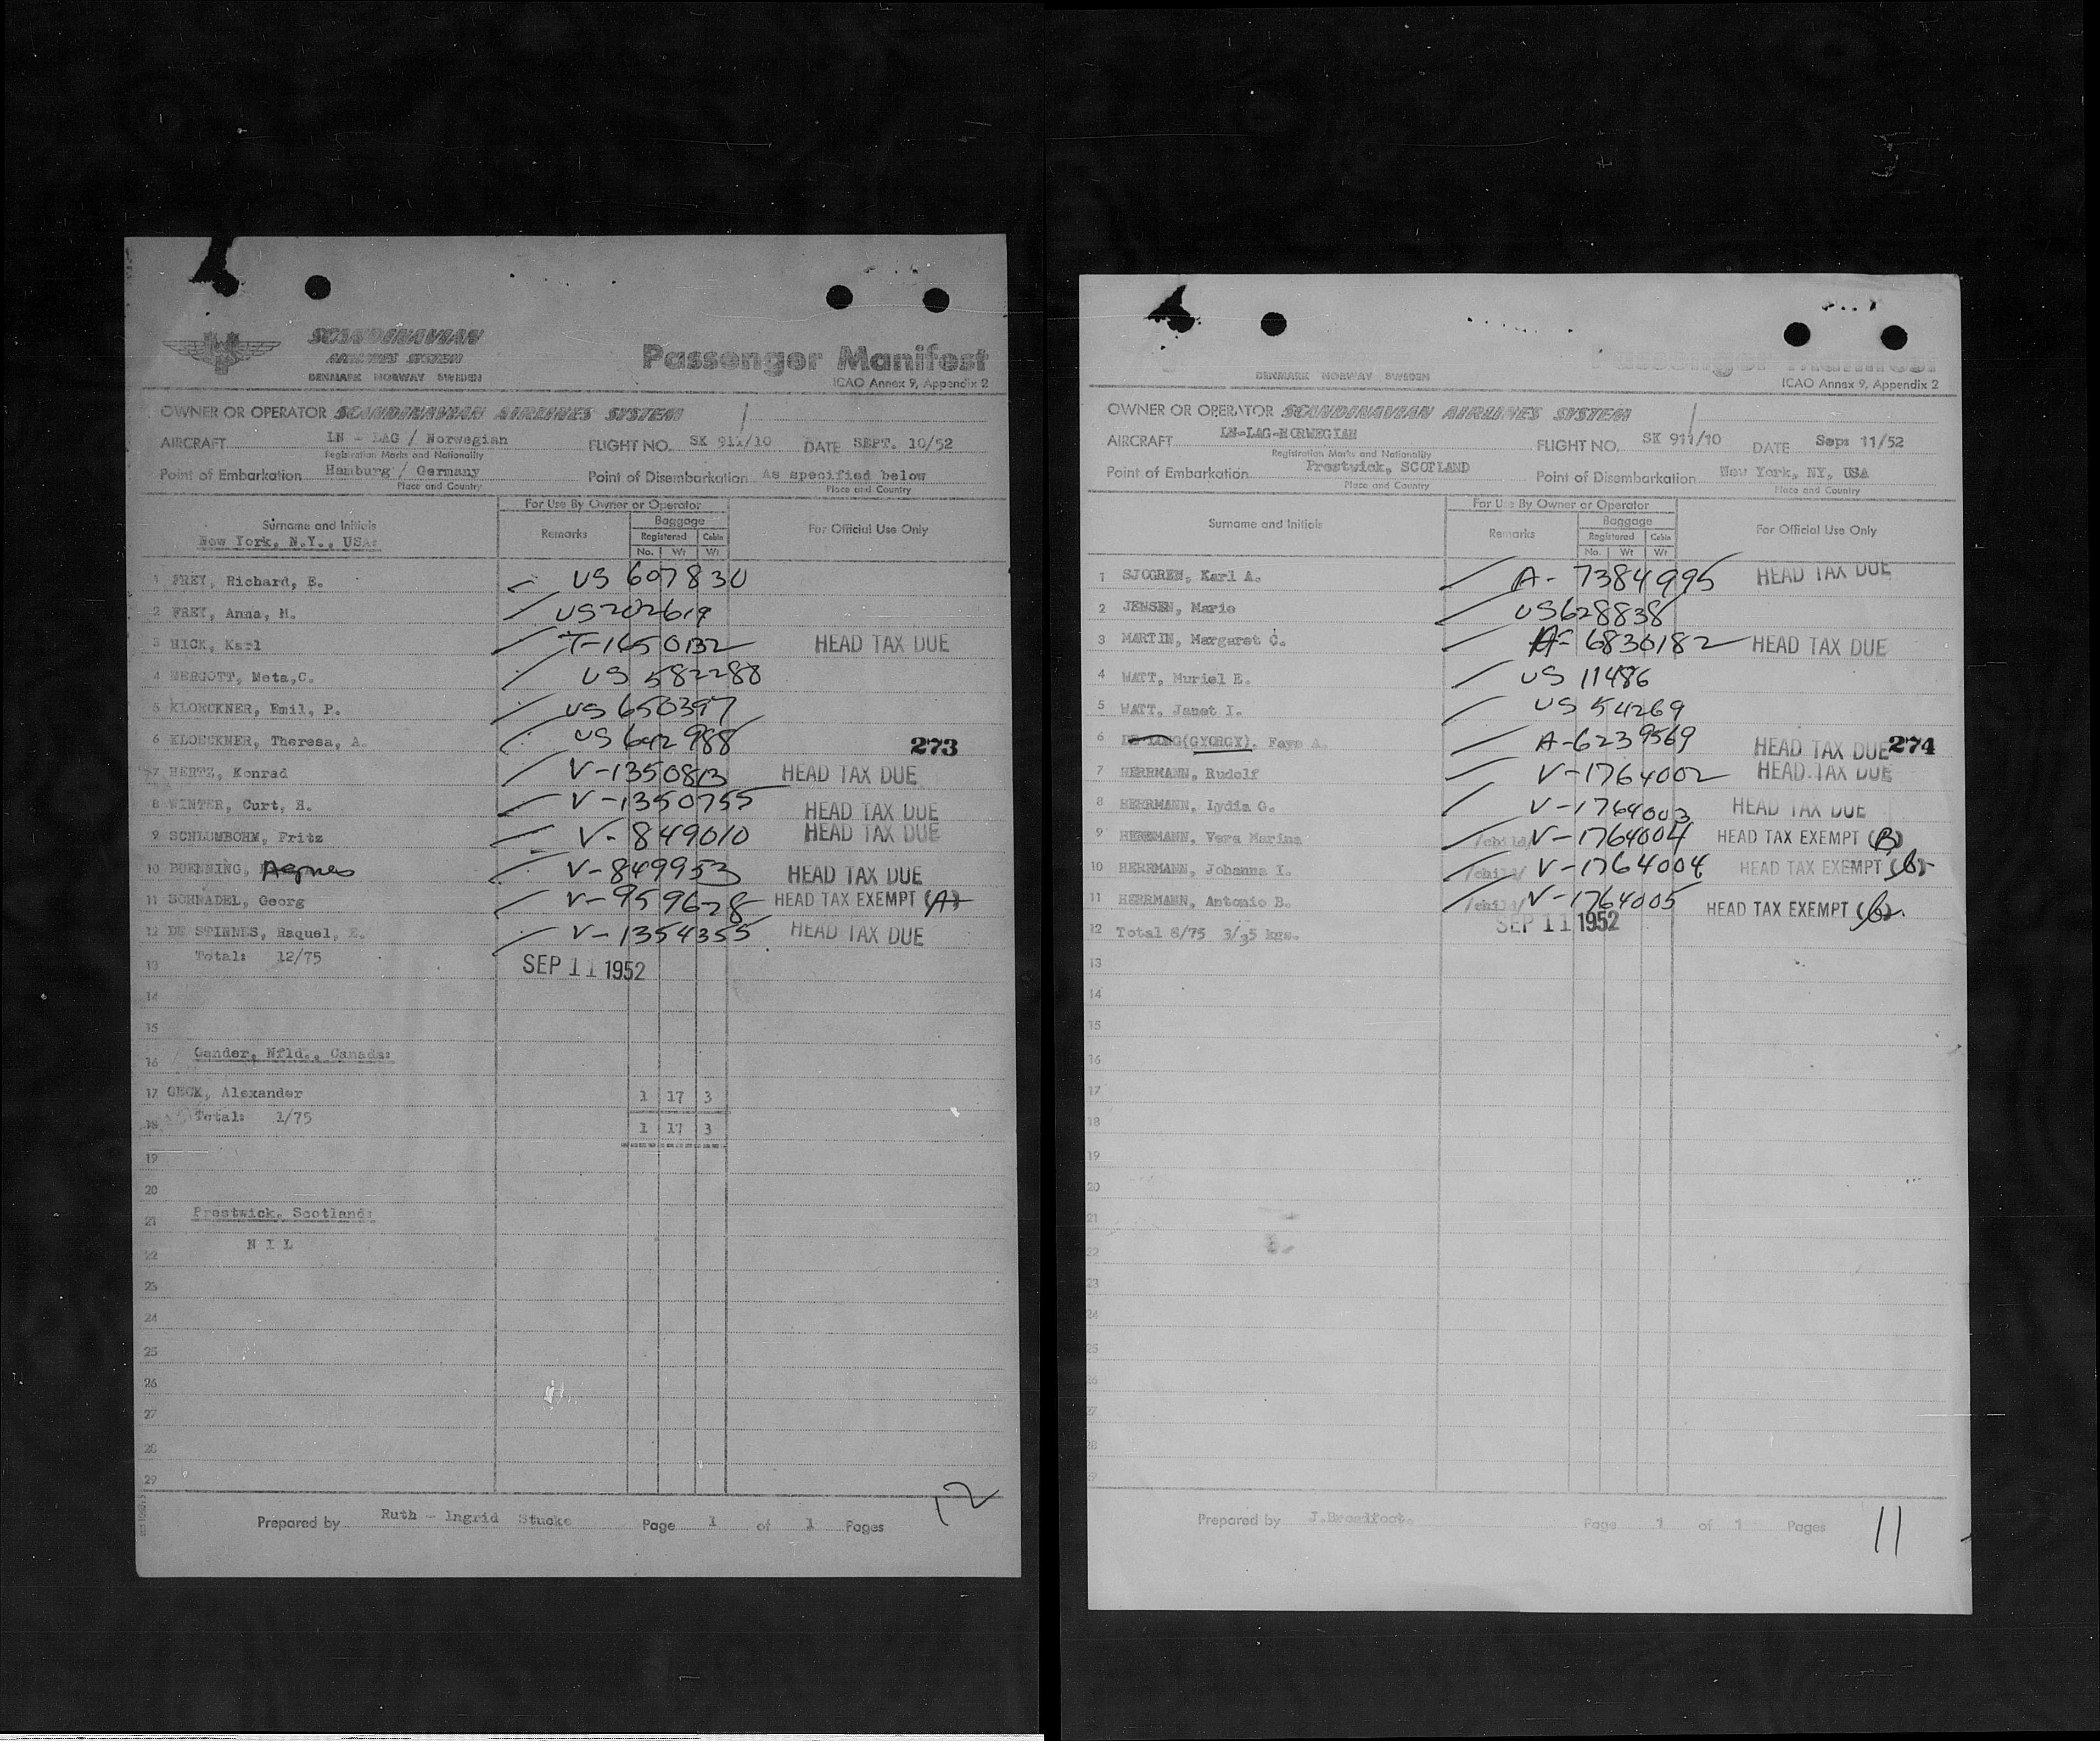 SCANDINAVIAN
AIRLINES SYSTEM
DENMARK NORWAY SWEDEN
Passenger Manifest
ICAO Annex 9, Appendix 2
OWNER OR OPERATOR SCANDINAVIAN AIRLINES SYSTEM
AIRCRAFT LN - LAG / Norwegian FLIGHT NO. SK 911/10 DATE SEPT. 10/52
Registration Marks and Nationality
Point of Embarkation Hamburg / Germany Point of Disembarkation As specified below
Place and Country Place and Country
For Use By Owner or Operator
Surname and Initials Remarks Baggage For Official Use Only
Registered Cabin
New York, N.Y., USA:
No. Wt Wt
1 FREY, Richard, E. US 607830
2 FREY, Anna, H. US 202619
3 HICK, Karl T-1650132 HEAD TAX DUE
4 MERGOTT, Meta,C. US 582288
5 KLOECKNER, Emil, P. US 650397
6 KLOECKNER, Theresa, A. US 642988 273
7 HERTZ, Konrad V-1350813 HEAD TAX DUE
8 WINTER, Curt, H. V-1350755 HEAD TAX DUE
9 SCHLUMBOHM, Fritz V-849010 HEAD TAX DUE
10 BUENNING, Agnes V-849953 HEAD TAX DUE
11 SCHNADEL, Georg V-959628 HEAD TAX EXEMPT (A)
12 DE STINNES, Raquel, E. V-1354355 HEAD TAX DUE
Total: 12/75
13 SEP 11 1952
14
15
16 Gander, Nfld., Canada:
17 GECK, Alexander 1 17 3
Total: 1/75
18 1 17 3
19
20
21 Prestwick, Scotland:
N I L
22
23
24
25
26
27
28
29
12
Prepared by Ruth - Ingrid Stucke Page 1 of 1 Pages
DENMARK NORWAY SWEDEN
Passenger Manifest
ICAO Annex 9, Appendix 2
OWNER OR OPERATOR SCANDINAVIAN AIRLINES SYSTEM
AIRCRAFT LN-LAG-NORWEGIAN FLIGHT NO. SK 911/10 DATE Seps 11/52
Registration Marks and Nationality
Point of Embarkation Prestwick, SCOTLAND Point of Disembarkation New York, NY, USA
Place and Country Place and Country
For Use By Owner or Operator
Surname and Initials Remarks Baggage For Official Use Only
Registered Cabin
No. Wt Wt
1 SJOGREN, Karl A. A-7384995 HEAD TAX DUE
2 JENSEN, Marie US628838
3 MARTIN, Margaret C. A-6830182 HEAD TAX DUE
4 WATT, Muriel E. US 11486
5 WATT, Janet I. US 54269
6 (GYORGY), Faye A. A-6239569 HEAD TAX DUE 274
7 HERRMANN, Rudolf V-1764002 HEAD TAX DUE
8 HERRMANN, Lydia G. V-1764003 HEAD TAX DUE
9 HERRMANN, Vera Marina /child/ V-1764004 HEAD TAX EXEMPT (B)
10 HERRMANN, Johanna I. /child/ V-1764004 HEAD TAX EXEMPT (B)
11 HERRMANN, Antonio B. /child/ V-1764005 HEAD TAX EXEMPT (B).
12 Total 8/75 3/35 kgs. SEP 11 1952
13
14
15
16
17
18
19
20
21
22
23
24
25
26
27
28
Prepared by J.Broadfoot. Page 1 of 1 Pages
11